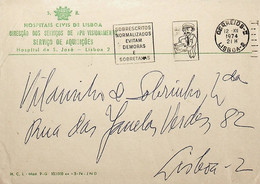 S. R.
HOSPITAIS CIVIS DE LISBOA
DIRECÇÃO DOS SERVIÇOS DE APROVISIONAMENTO
SERVIÇO DE AQUISIÇÕES
Hospital de S. José - Lisboa 2
SOBRESCRITOS
NORMALIZADOS
EVITAM
DEMORAS
SOBRETAXAS
CORREIOS-2
1974
21 H
LISBOA-2
Vilarinho & Sobrinho, Lda
Rua das Janelas Verdes, 82
Lisboa-2
H. C. L.